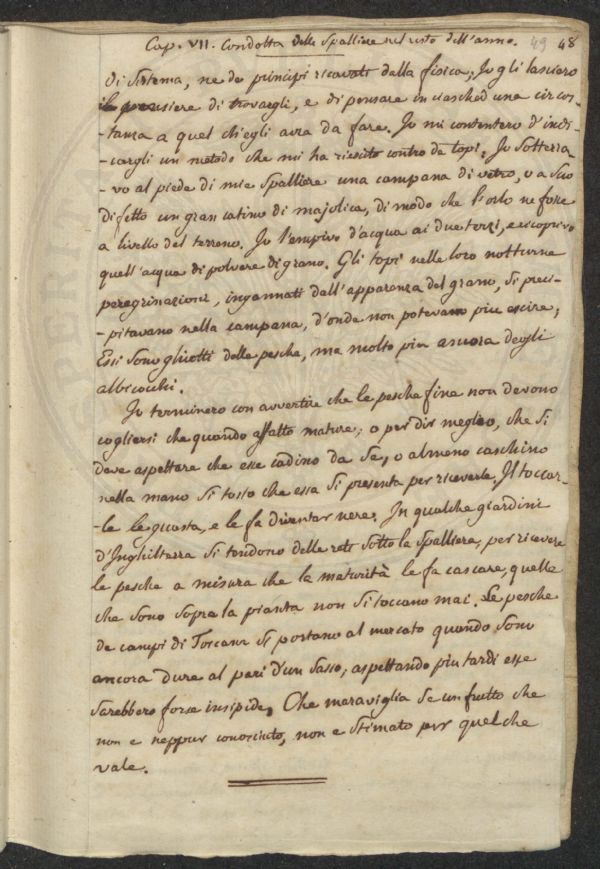 Cap. VII. Condotta delle Spalliere nel resto dell'anno. 49 48
di Sistema, ne da principj ricavati dalla fisica; Io gli lasciero
il pensiere di trovargli, e di pensare in ciasched'una circos-
-tanza a quel ch'egli avra da fare. Io mi contentero d'indi-
-cargli un metodo che mi ha riescito contro de topi; Io Sotterra-
-vo al piede di mie Spalliere una campana di vetro, o a Suo
difetto un gran catino di majolica, di modo che l'orlo ne fosse
a livello del terreno. Io l'empivo d'acqua ai due terzi, e ricoprivo
quell'acqua di polvere di grano. Gli topi nelle loro notturne
peregrinazioni, ingannati dall'apparenza del grano, Si preci-
-pitavano nella campana, d'onde non potevano piu escire;
Essi Sono ghiotti delle pesche, ma molto piu ancora degli
albicocchi.
Io terminero con avvertire che le pesche fine non devono
cogliersi che quando affatto mature; o per dir meglio, che Si
deve aspettare che esse cadino da Se, o almeno caschino
nella mano Si tosto che essa Si presenta per riceverle. Il toccar-
-le le guasta, e le fa diventar nere. In qualche giardini
d'Inghilterra Si tendono delle reti Sotto la Spalliera, per ricevere
le pesche a misura che la maturità le fa cascare, quelle
che sono sopra la pianta non Si toccano mai. Le pesche
de campi di Toscana Si portano al mercato quando Sono
ancora dure al pari d'un Sasso, aspettando piu tardi esse
Sarebbero forse insipide. Che maraviglia Se un frutto che
non e neppur conosciuto, non e Stimato per quel che
vale.